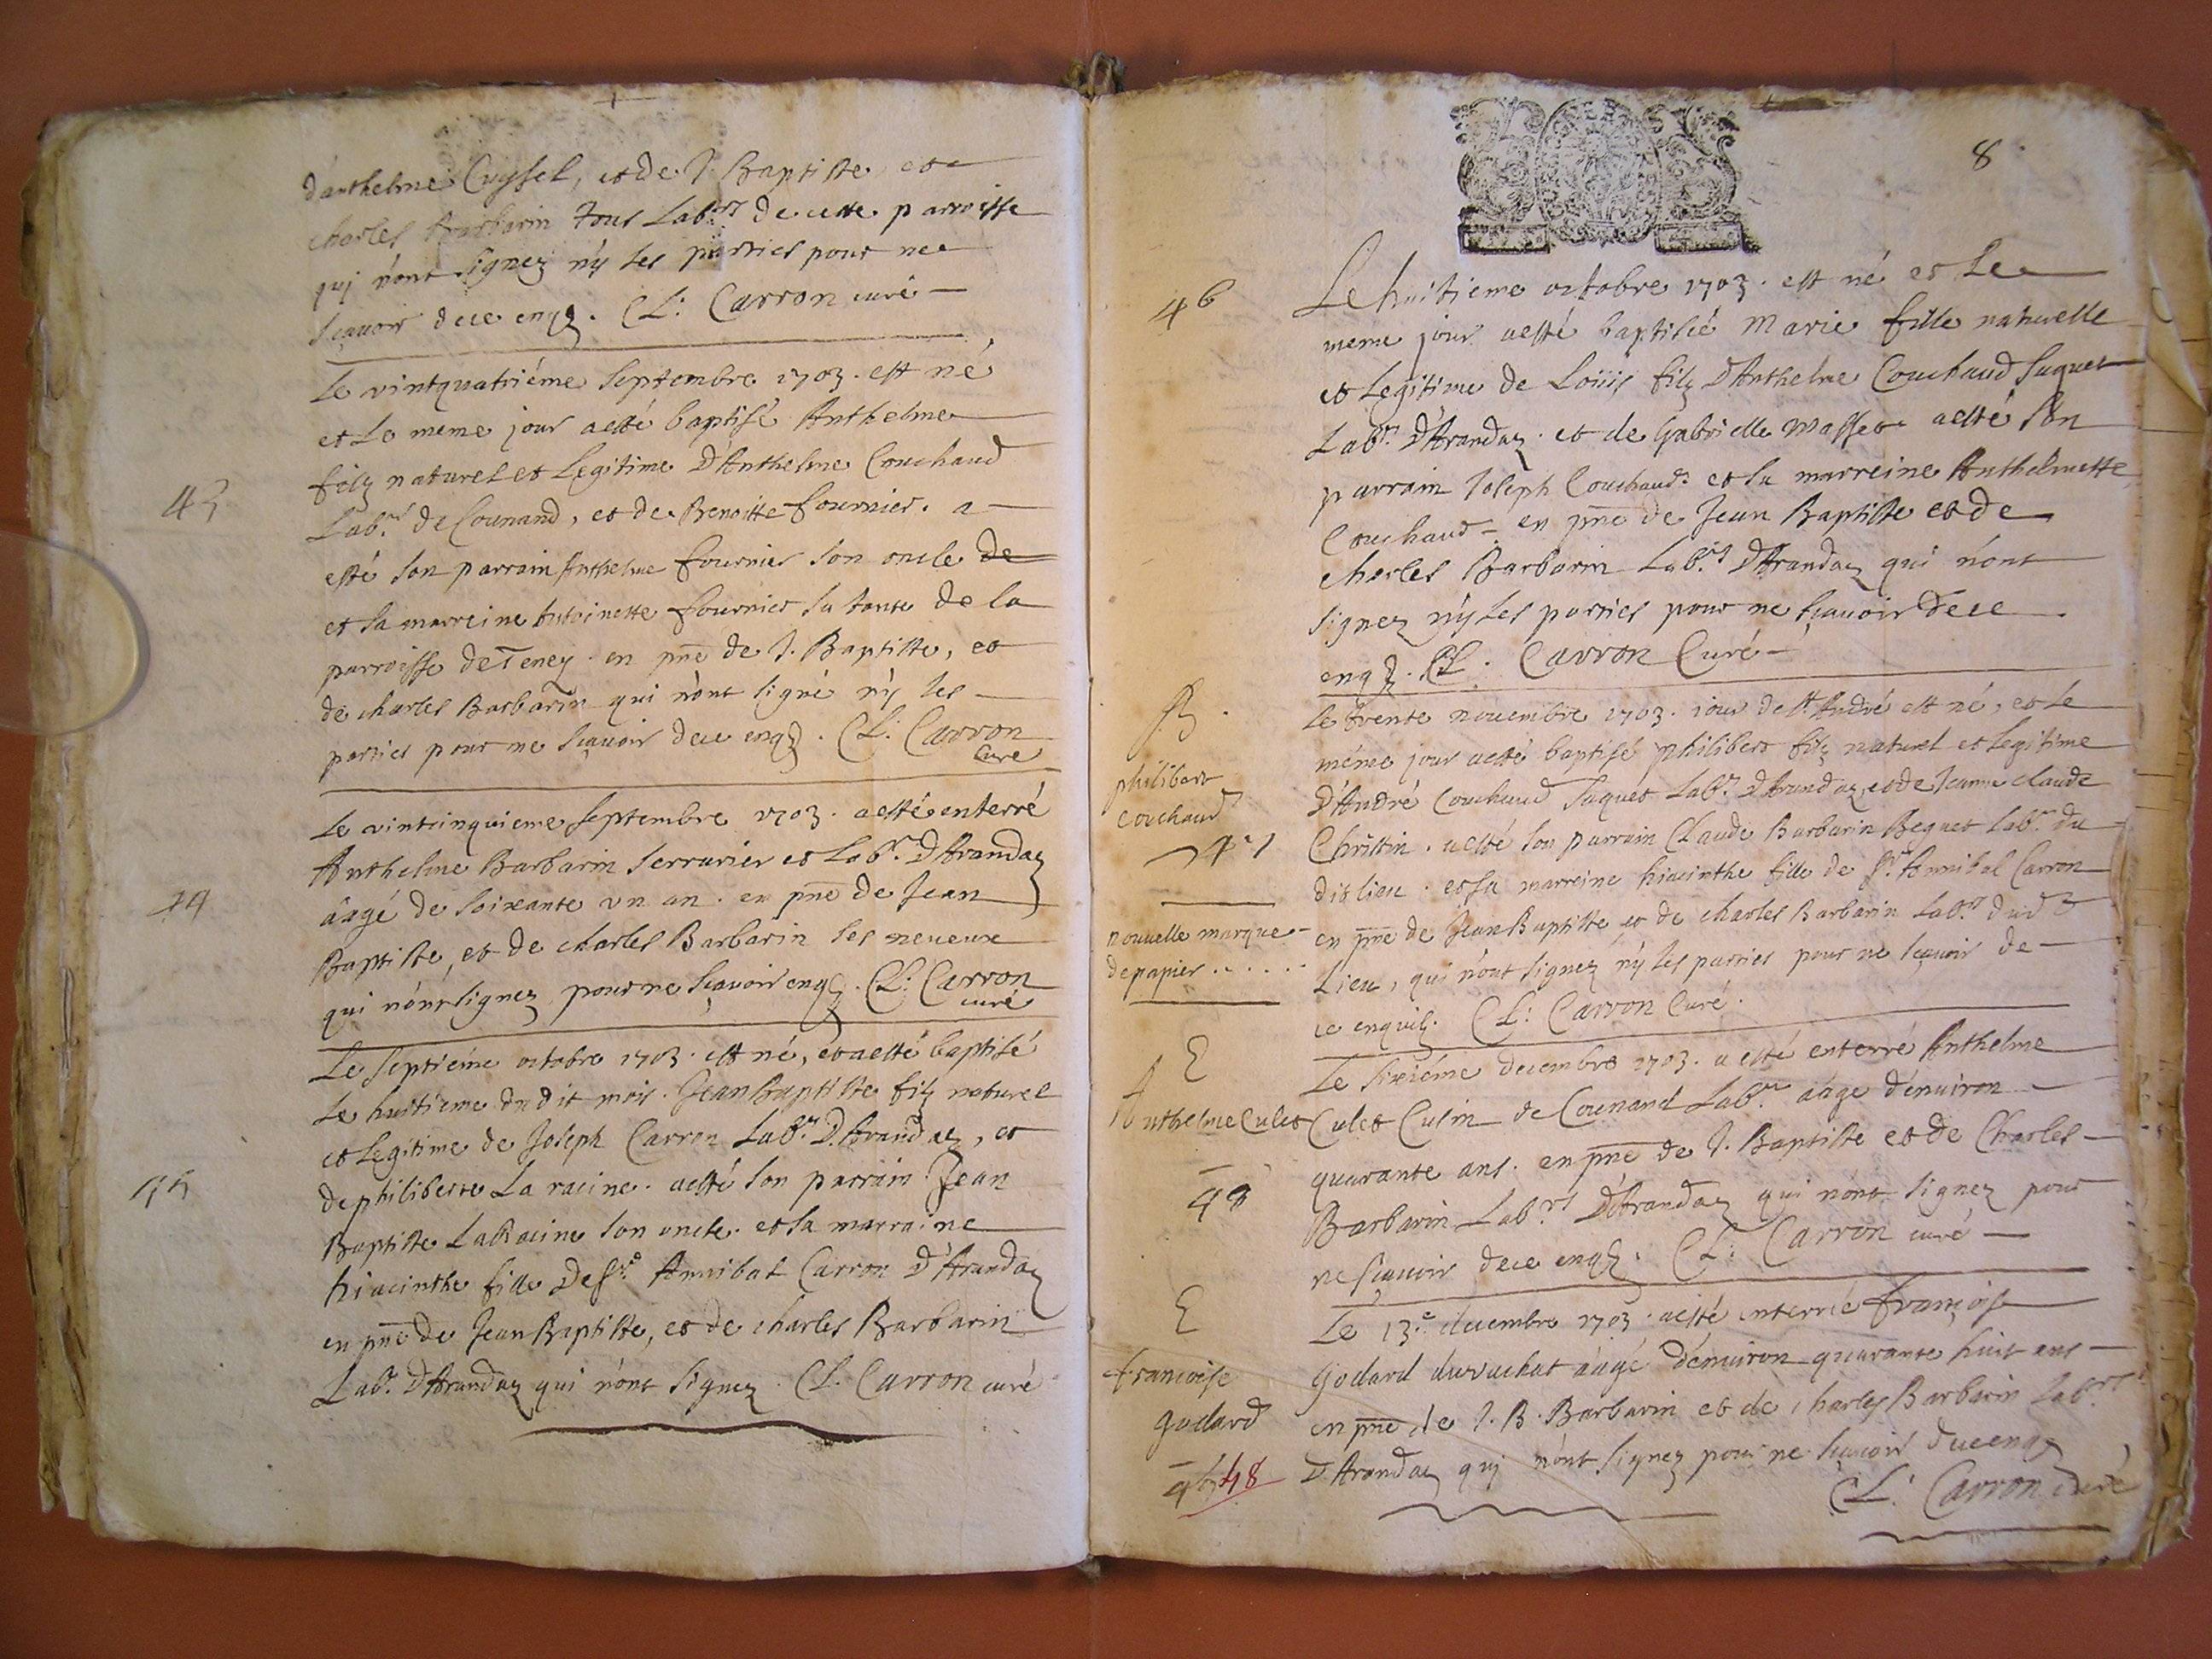 d'anthelme Cuysel, et de J. Baptiste et
charles Barbarin tous Lab.rs de cette parroisse
qui n'ont signez n'y les parties pour ne
sçavoir de ce enqs. CL: Carron curé
Le vintquatriéme Septembre 1703. est né
et Le meme jour a esté baptisé Anthelme
43
filz naturel et Legitime D'Anthelme Couchaud
Lab.r de Counand, et de Benoitte fournier. a
esté son parrain Anthelme fournier son oncle de
et sa marreine Antoinette fournier sa tante de la
parroisse de Teney. en pñe de J. Baptiste, et
de charles Barbarin qui n'ont signé n'y les
parties pour ne sçavoir de ce enqs. CL: Carron
Curé
Le vintcinquieme septembre 1703. a esté enterré
Anthelme Barbarin serrurier et Lab.r D'Arandaz
44
âagé de soixante un an. en pñe de Jean
Baptiste, et de charles Barbarin ses neveux
qui n'ont signez pour ne sçavoir enqs. CL: Carron
curé
Le septiéme octobre 1703. est né, et a esté baptisé
Le huitieme du dit mois. Jean Baptiste filz naturel
et Legitime de Joseph Carron Lab.r D'Arandaz, et
45
de philiberte La racine. a esté son parrain Jean
Baptiste LaRacine son oncle. et sa marraine
hiacinthe fille de Sr. Annibal Carron D'Arandaz
en pñe de Jean Baptiste, et de charles Barbarin
Lab.r D'Arandaz qui n'ont signez. CL. Carron curé
8
46
Le huitieme octobre 1703. est né et Le
meme jour a esté baptiseé Marie fille naturelle
et Legitime de Loüis filz D'Anthelme Couchaud Suquet
Lab.r D'Arandaz. et de Gabrielle Masset a esté son
parrain Joseph Couchaud. et sa marreine Anthelmette
Couchaud. en pñe de Jean Baptiste et de
charles Barbarin Lab.rs D'Arandaz qui n'ont
signez n'y Les parties pour ne sçavoir de ce
enqs. CL. Carron Curé
B.
philibert
couchaud
47
Le trente novembre 1703. jour de st. André est né, et le
même jour a esté baptisé philibert filz naturel et legitime
D'André Couchaud Suquet Lab.r D'Arandaz et de Jeanne claude
Christin. a esté son parrain Claude Barbarin Beguet Lab.r du
dit lieu. et sa marreine hiacinthe fille de Sr. Annibal Carron
nouvelle marque
de papier......
en pñe de Jean Baptiste et de charles Barbarin Lab.rs dud
Lieu, qui n'ont signez n'y les parties pour ne sçavoir de
ce enquis. CL: Carron Curé.
E
Anthelme Culet
48
Le sixiéme decembre 1703. a esté enterré Anthelme
Culet Culin de Counand Lab.r âage d'environ
quarante ans. en pñe de J. Baptiste et de Charles
Barbarin Lab.rs D'Arandaz qui n'ont signez pour
ne sçavoir de ce enqs. CL: Carron curé
E
francoise
godard
48
Le 13.e decembre 1703. a esté enterrée françoise
Godard duvachat âagé d'environ quarante huit ans
en pñe de J. B. Barbarin et de charles Barbarin Lab.rs
D'Arandaz qui n'ont signez pour ne sçavoir de ce enqs
CL: Carron curé